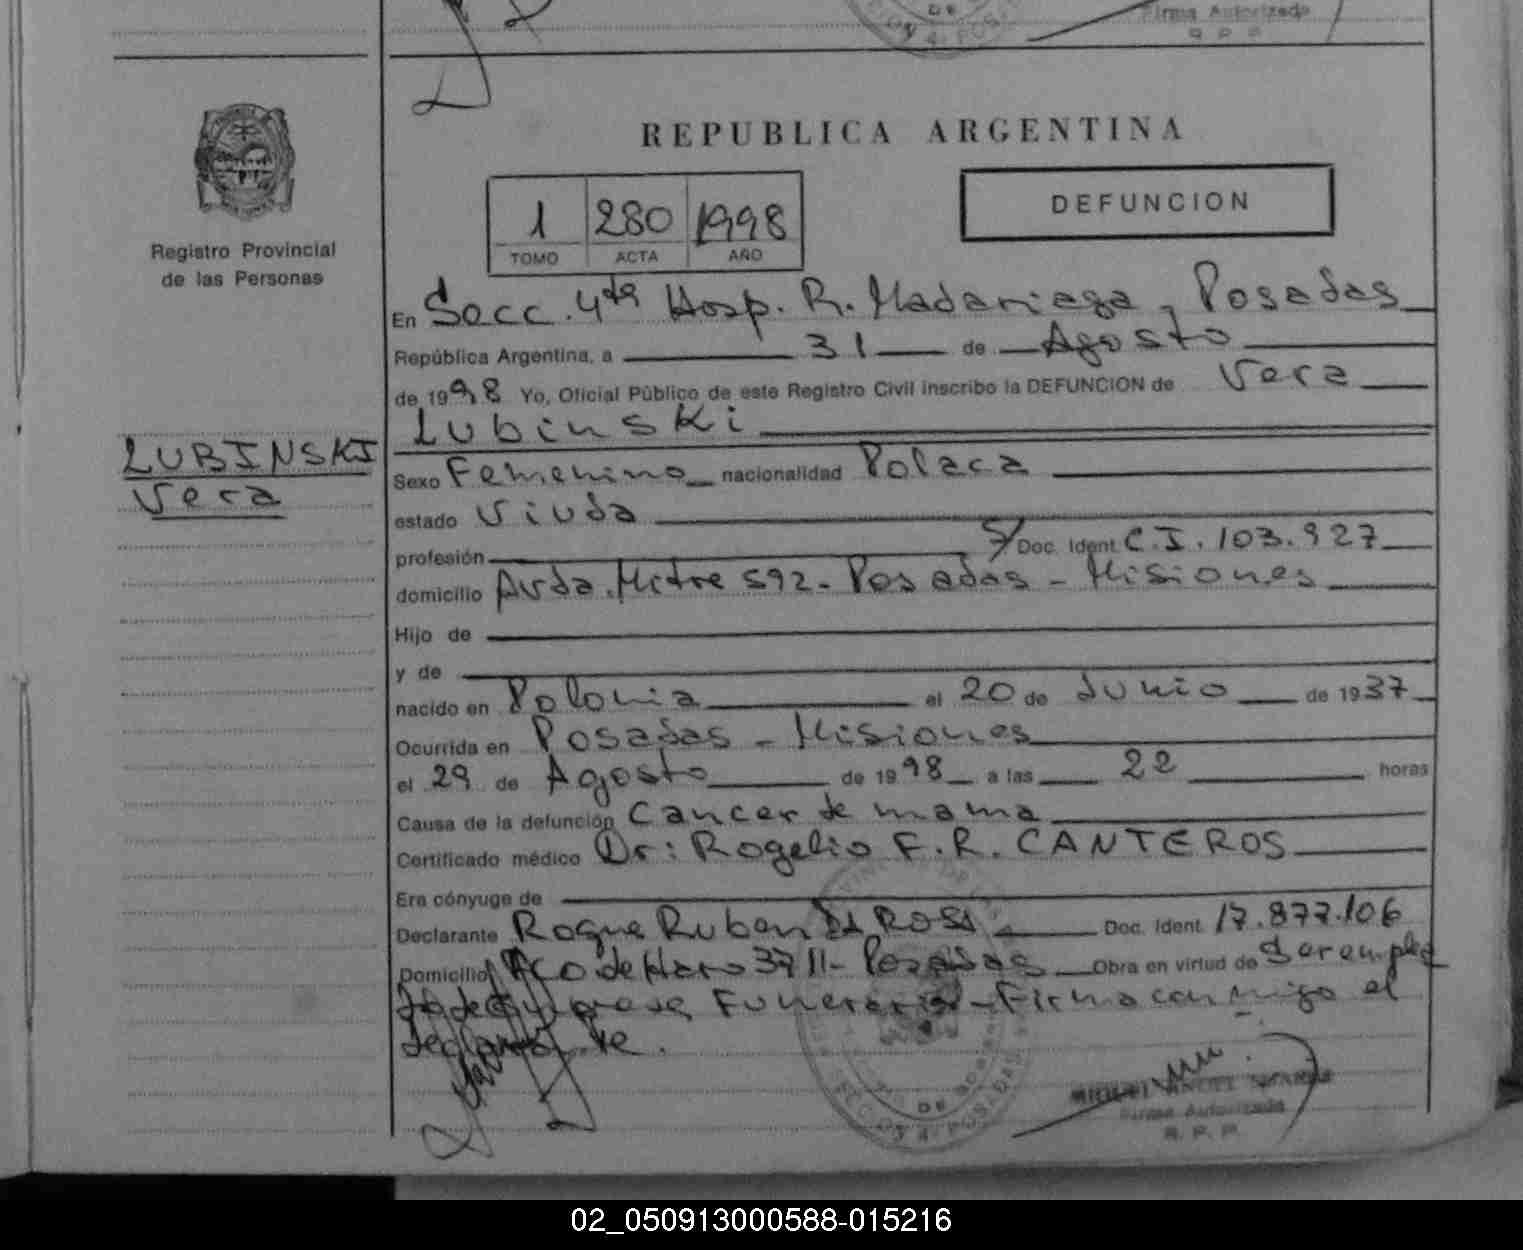 Firma Autorizada
R. P. P.
REPUBLICA ARGENTINA
1 280 1998
TOMO ACTA AÑO
DEFUNCION
Registro Provincial
de las Personas
En Secc. 4ta Hosp. R. Madariaga, Posadas
República Argentina, a 31 de Agosto
de 1998 Yo, Oficial Público de este Registro Civil inscribo la DEFUNCION de Vera
Lubinski
LUBINSKI
Vera
Sexo Femenino nacionalidad Polaca
estado Viuda
profesión Doc. Ident. C.I. 103.927
domicilio Avda. Mitre 592 - Posadas - Misiones
Hijo de
y de
nacido en Polonia el 20 de Junio de 1937
Ocurrida en Posadas - Misiones
el 29 de Agosto de 1998 a las 22 horas
Causa de la defunción Cancer de mama
Certificado médico Dr: Rogelio F. R. CANTEROS
Era cónyuge de
Declarante Roque Ruben Da Rosa Doc. Ident. 17.877.106
Domicilio Aco de Haro 3711 - Posadas Obra en virtud de Ser emplea
do de Empresa Funeraria - Firma conmigo el
declarante.
SECC. 4ª POSADAS
MIGUEL ANGEL
Firma Autorizada
R. P. P.
02_050913000588-015216